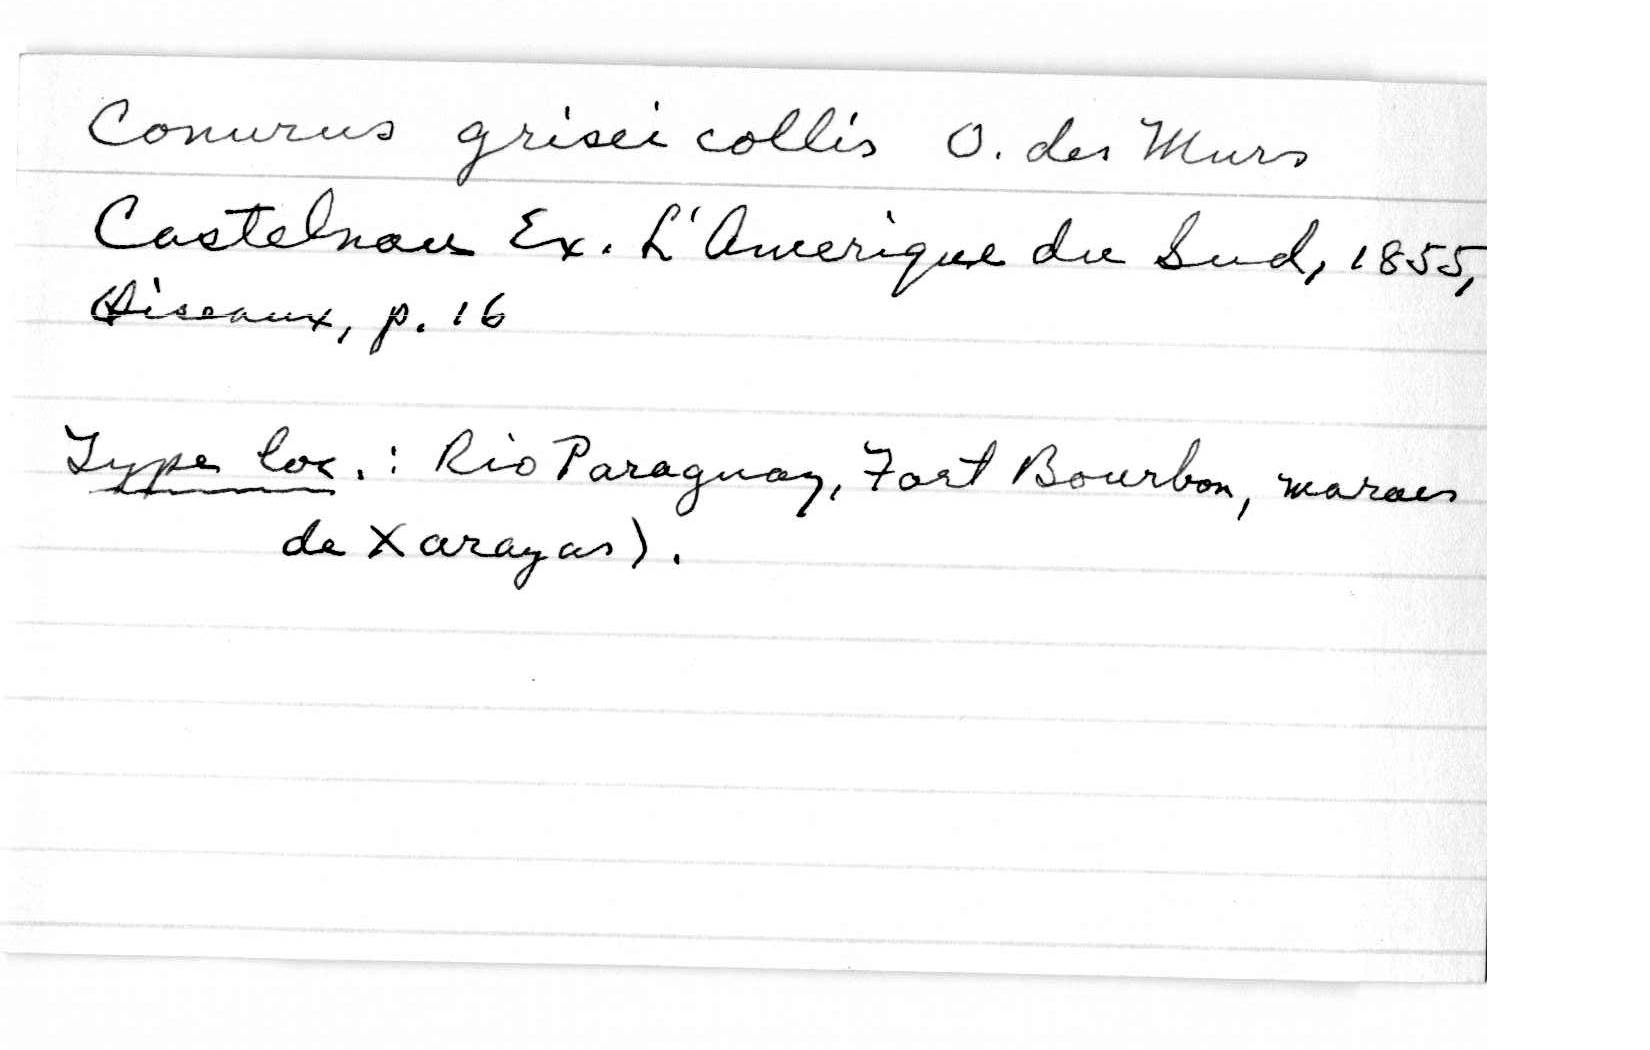 Conurus griseicollis O. des Murs
Castelnau Ex. L'Amerique du Sud, 1855,
Oiseaux, p. 16
Type loc.: Rio Paraguay, Fort Bourbon, maraes
de Xarayas).